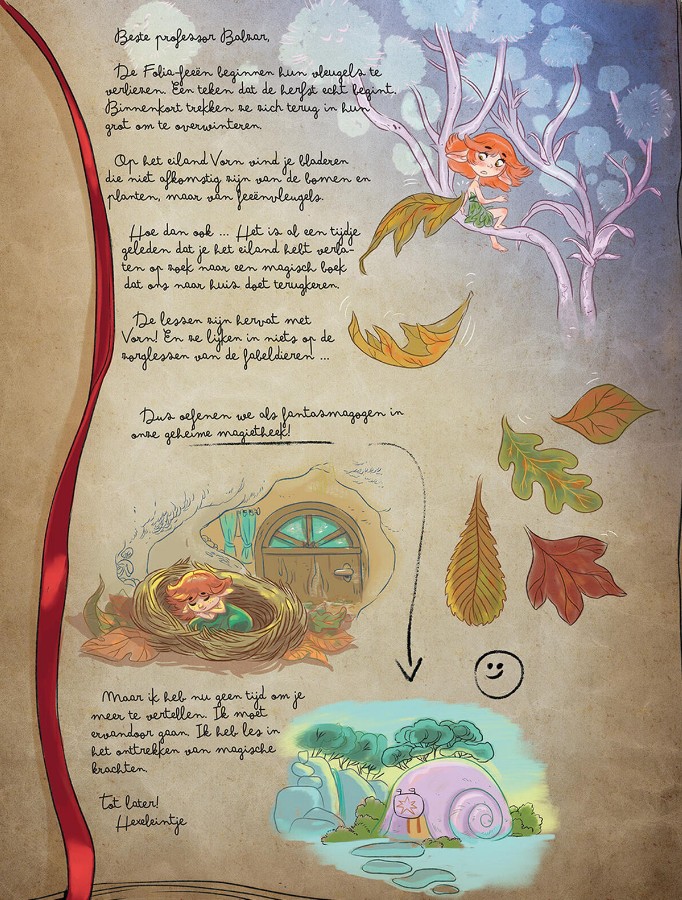 Beste professor Balzar,
De Folia-feeën beginnen hun vleugels te
verliezen. Een teken dat de herfst echt begint.
Binnenkort trekken ze zich terug in hun
grot om te overwinteren.
Op het eiland Vorn vind je bladeren
die niet afkomstig zijn van de bomen en
planten, maar van feeënvleugels.
Hoe dan ook ... Het is al een tijdje
geleden dat je het eiland hebt verla-
ten op zoek naar een magisch boek
dat ons naar huis doet terugkeren.
De lessen zijn hervat met
Vorn! En ze lijken in niets op de
zorglessen van de fabeldieren ...
Dus oefenen we als fantasmagogen in
onze geheime magietheek!
Maar ik heb nu geen tijd om je
meer te vertellen. Ik moet
ervandoor gaan. Ik heb les in
het onttrekken van magische
krachten.
Tot later!
Hexeleintje